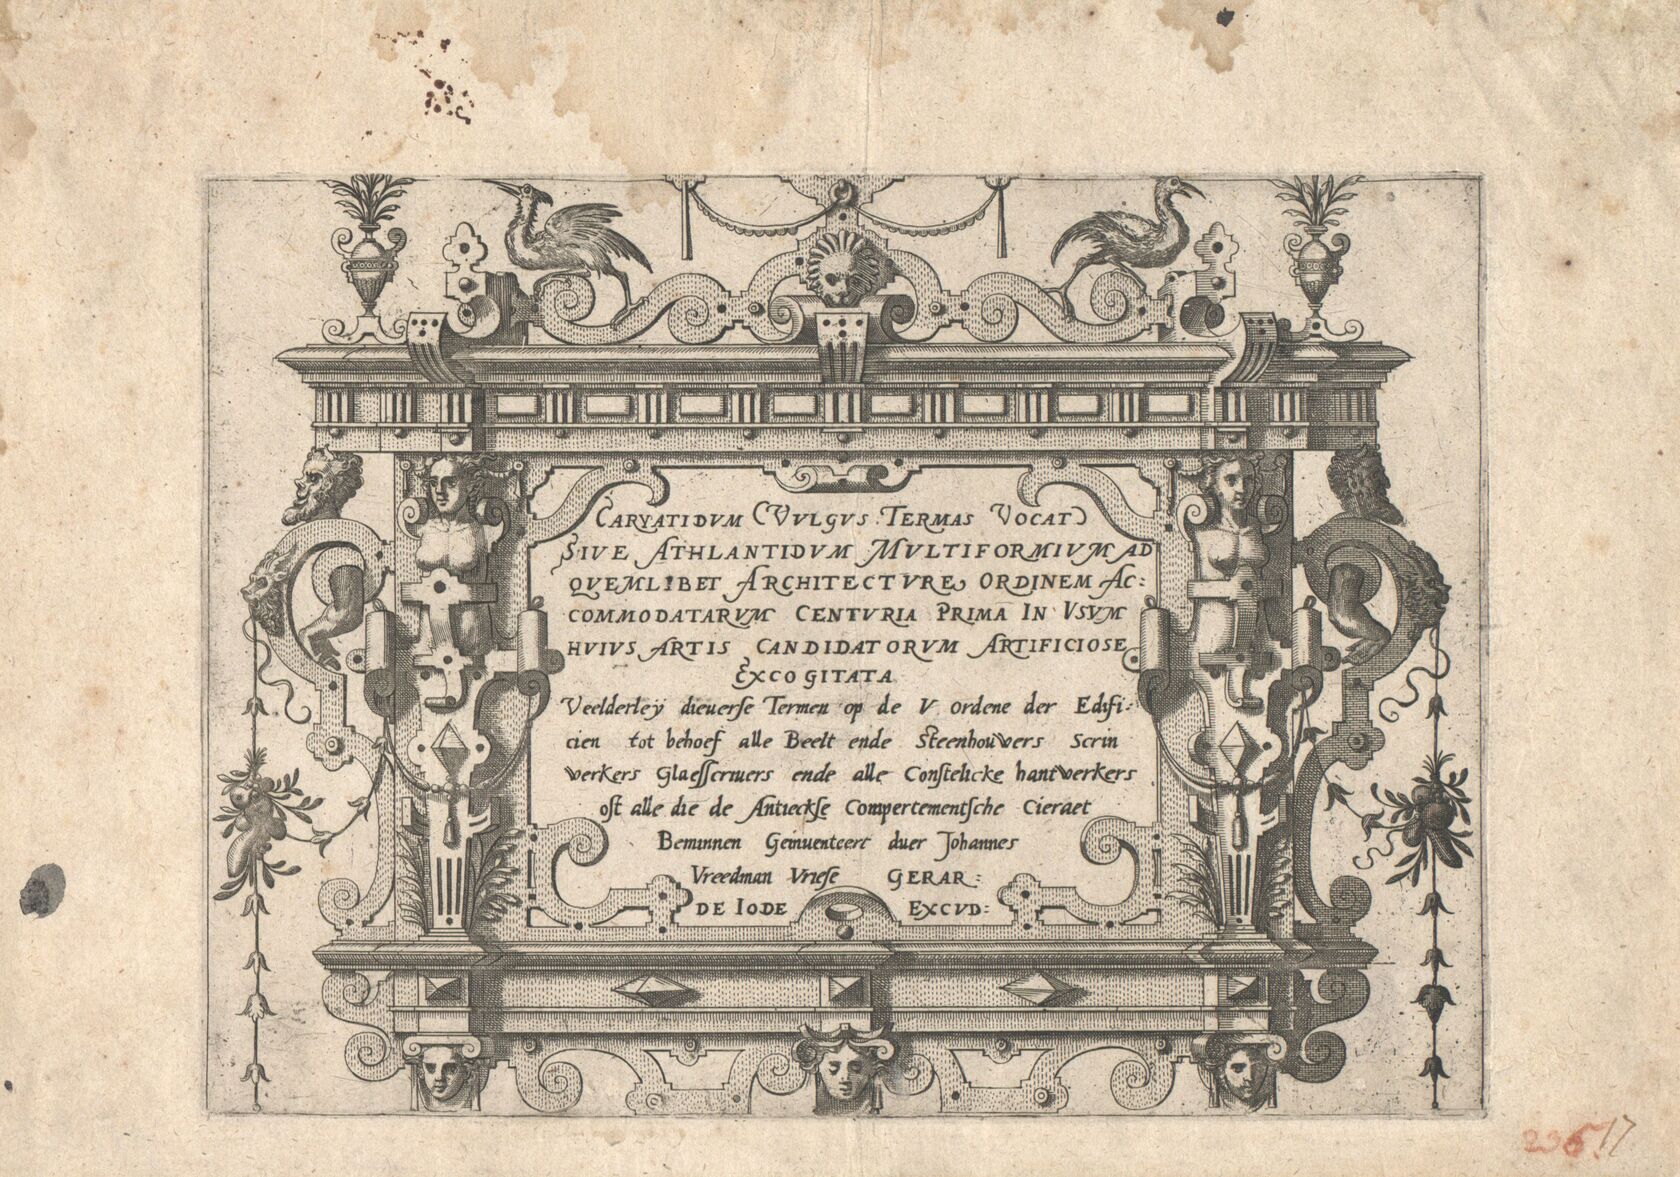 CARYATIDVM (VVLGVS TERMAS VOCAT)
SIVE ATHLANTIDVM MVLTIFORMIVM AD
QVEMLIBET ARCHITECTVRE ORDINEM AC:
COMMODATARVM CENTVRIA PRIMA IN VSVM
HVIVS ARTIS CANDIDATORVM ARTIFICIOSE
EXCOGITATA
Veelderleÿ dieuerse Termen op de V ordene der Edifi:
cien tot behoef alle Beelt ende Steenhouwers Scrin
werkers Glaesscriuers ende alle Constelicke hantwerkers
oft alle die de Antieckse Compertementsche Cieraet
Beminnen Geinuenteert duer Johannes
Vreedman Vriese GERAR:
DE IODE EXCVD: